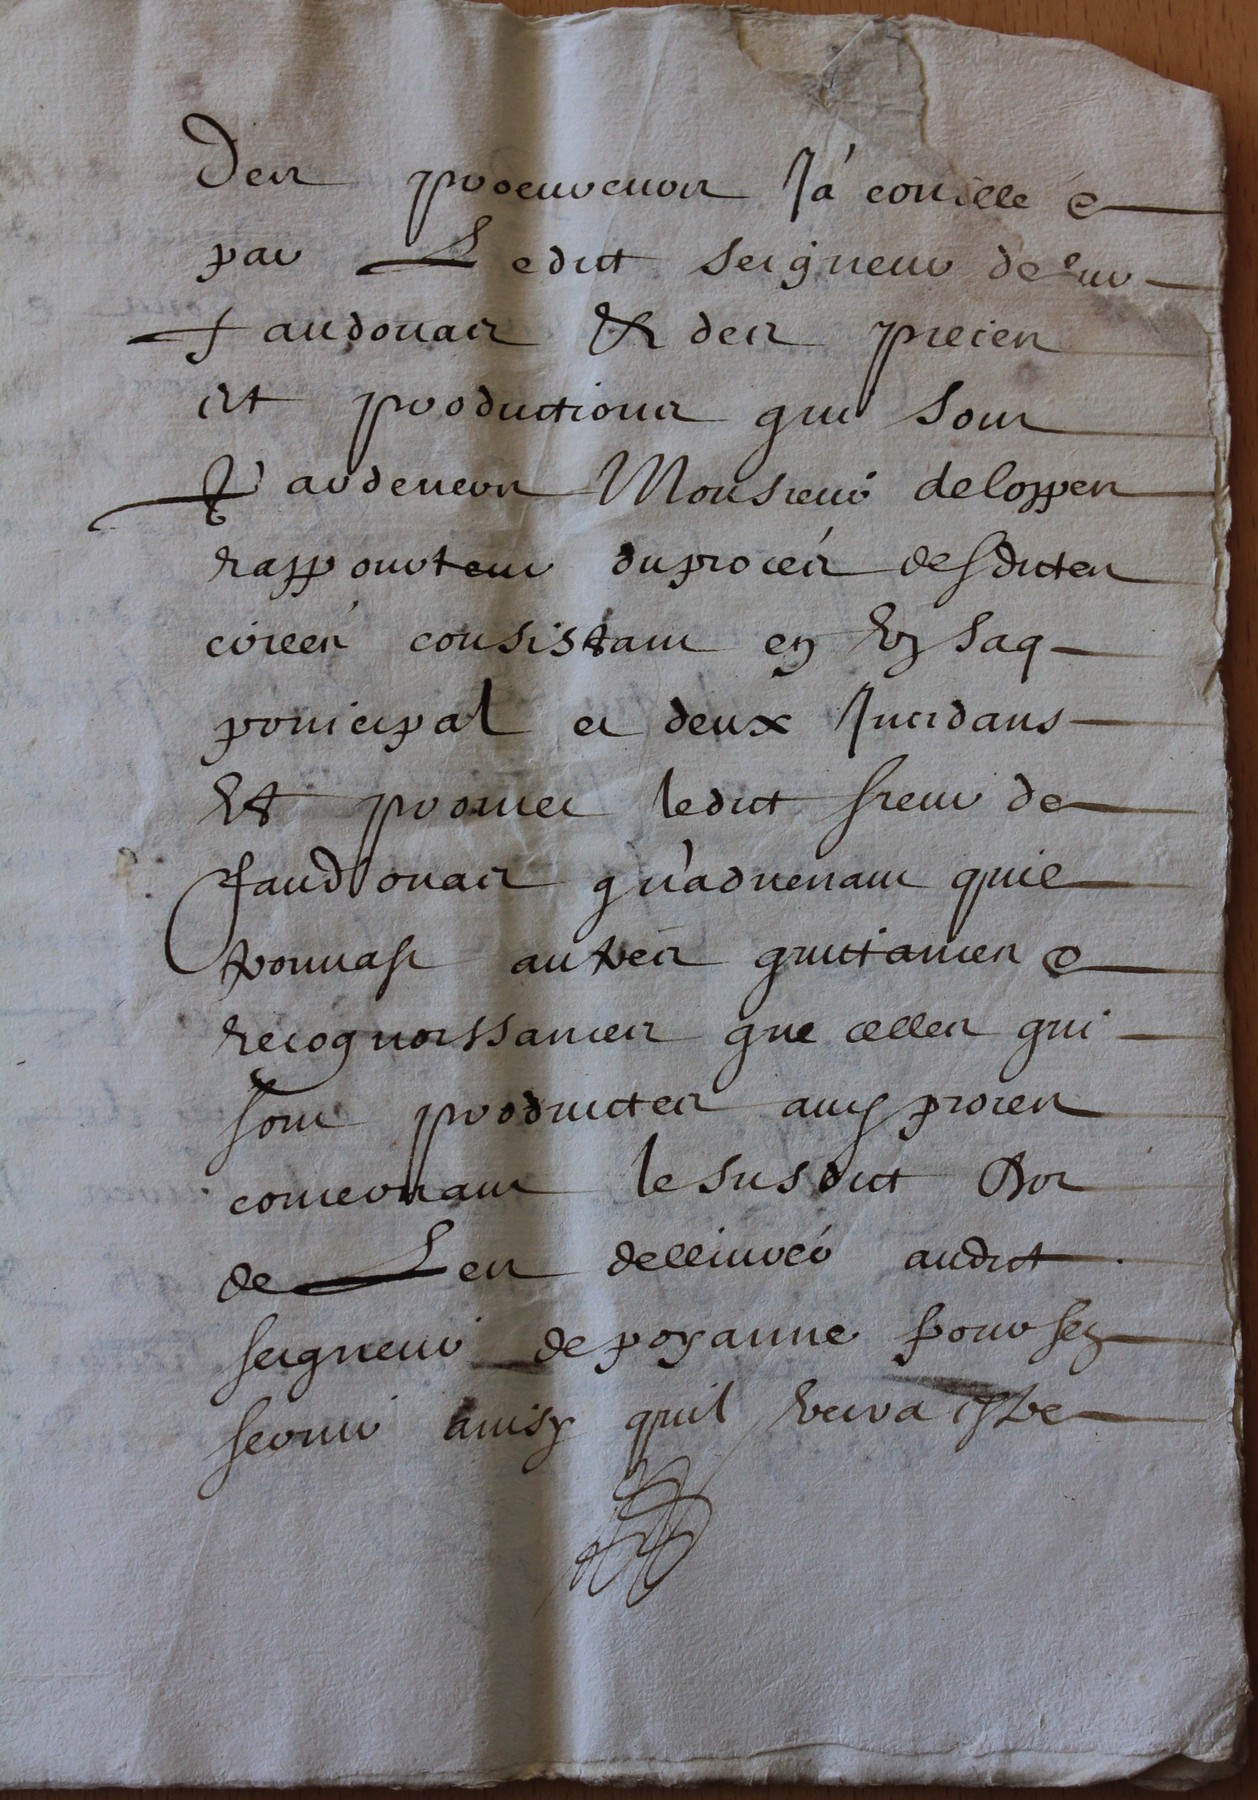 des procureurs Jaconille
par Ledict seigneur de sur
faudouas Et des pieces
et productions qui sont
Pardevers Monsieur de loppes
rapporteur du proces desdictes
criees consistant en Ung sacq
principal et deux Incidans
Et promet ledict sieur de
faudouas qu'advenant quil
trouvast autres quictances
recognoissances que celles qui
sont produictes aux proces
concernant le susdict dot
de Les dellivrer audict
seigneur de poyanne pour sen
servir ainsy quil verra estre